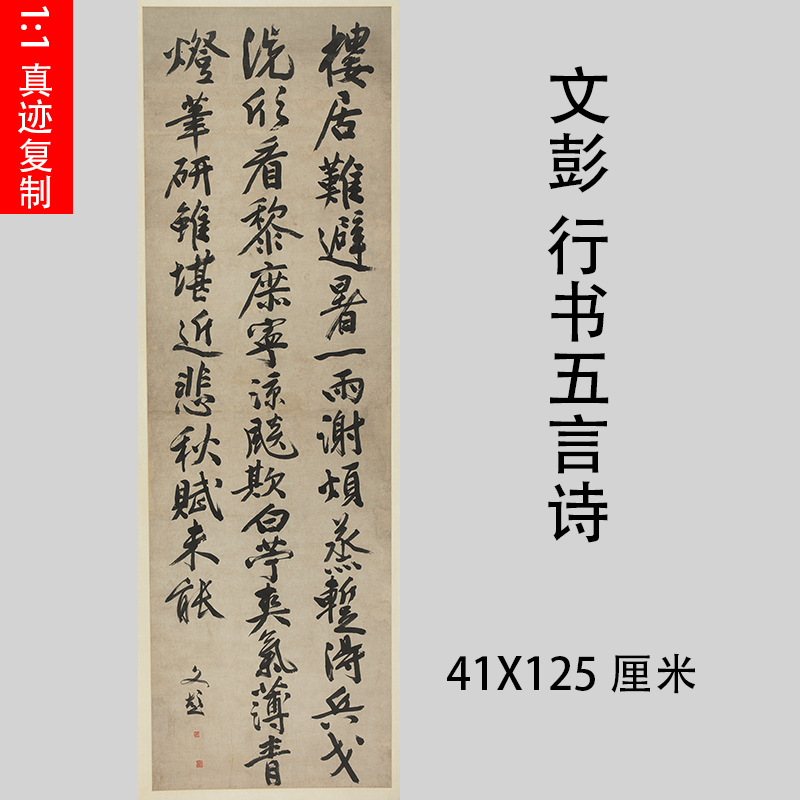 1:1 真迹复制
樓居難避暑一雨謝煩蒸暫得兵戈
洗欣看黎庶寧涼飈欺白苧爽氣薄青
燈筆研雖堪近悲秋賦未能
文彭
文彭 行书五言诗
41X125 厘米